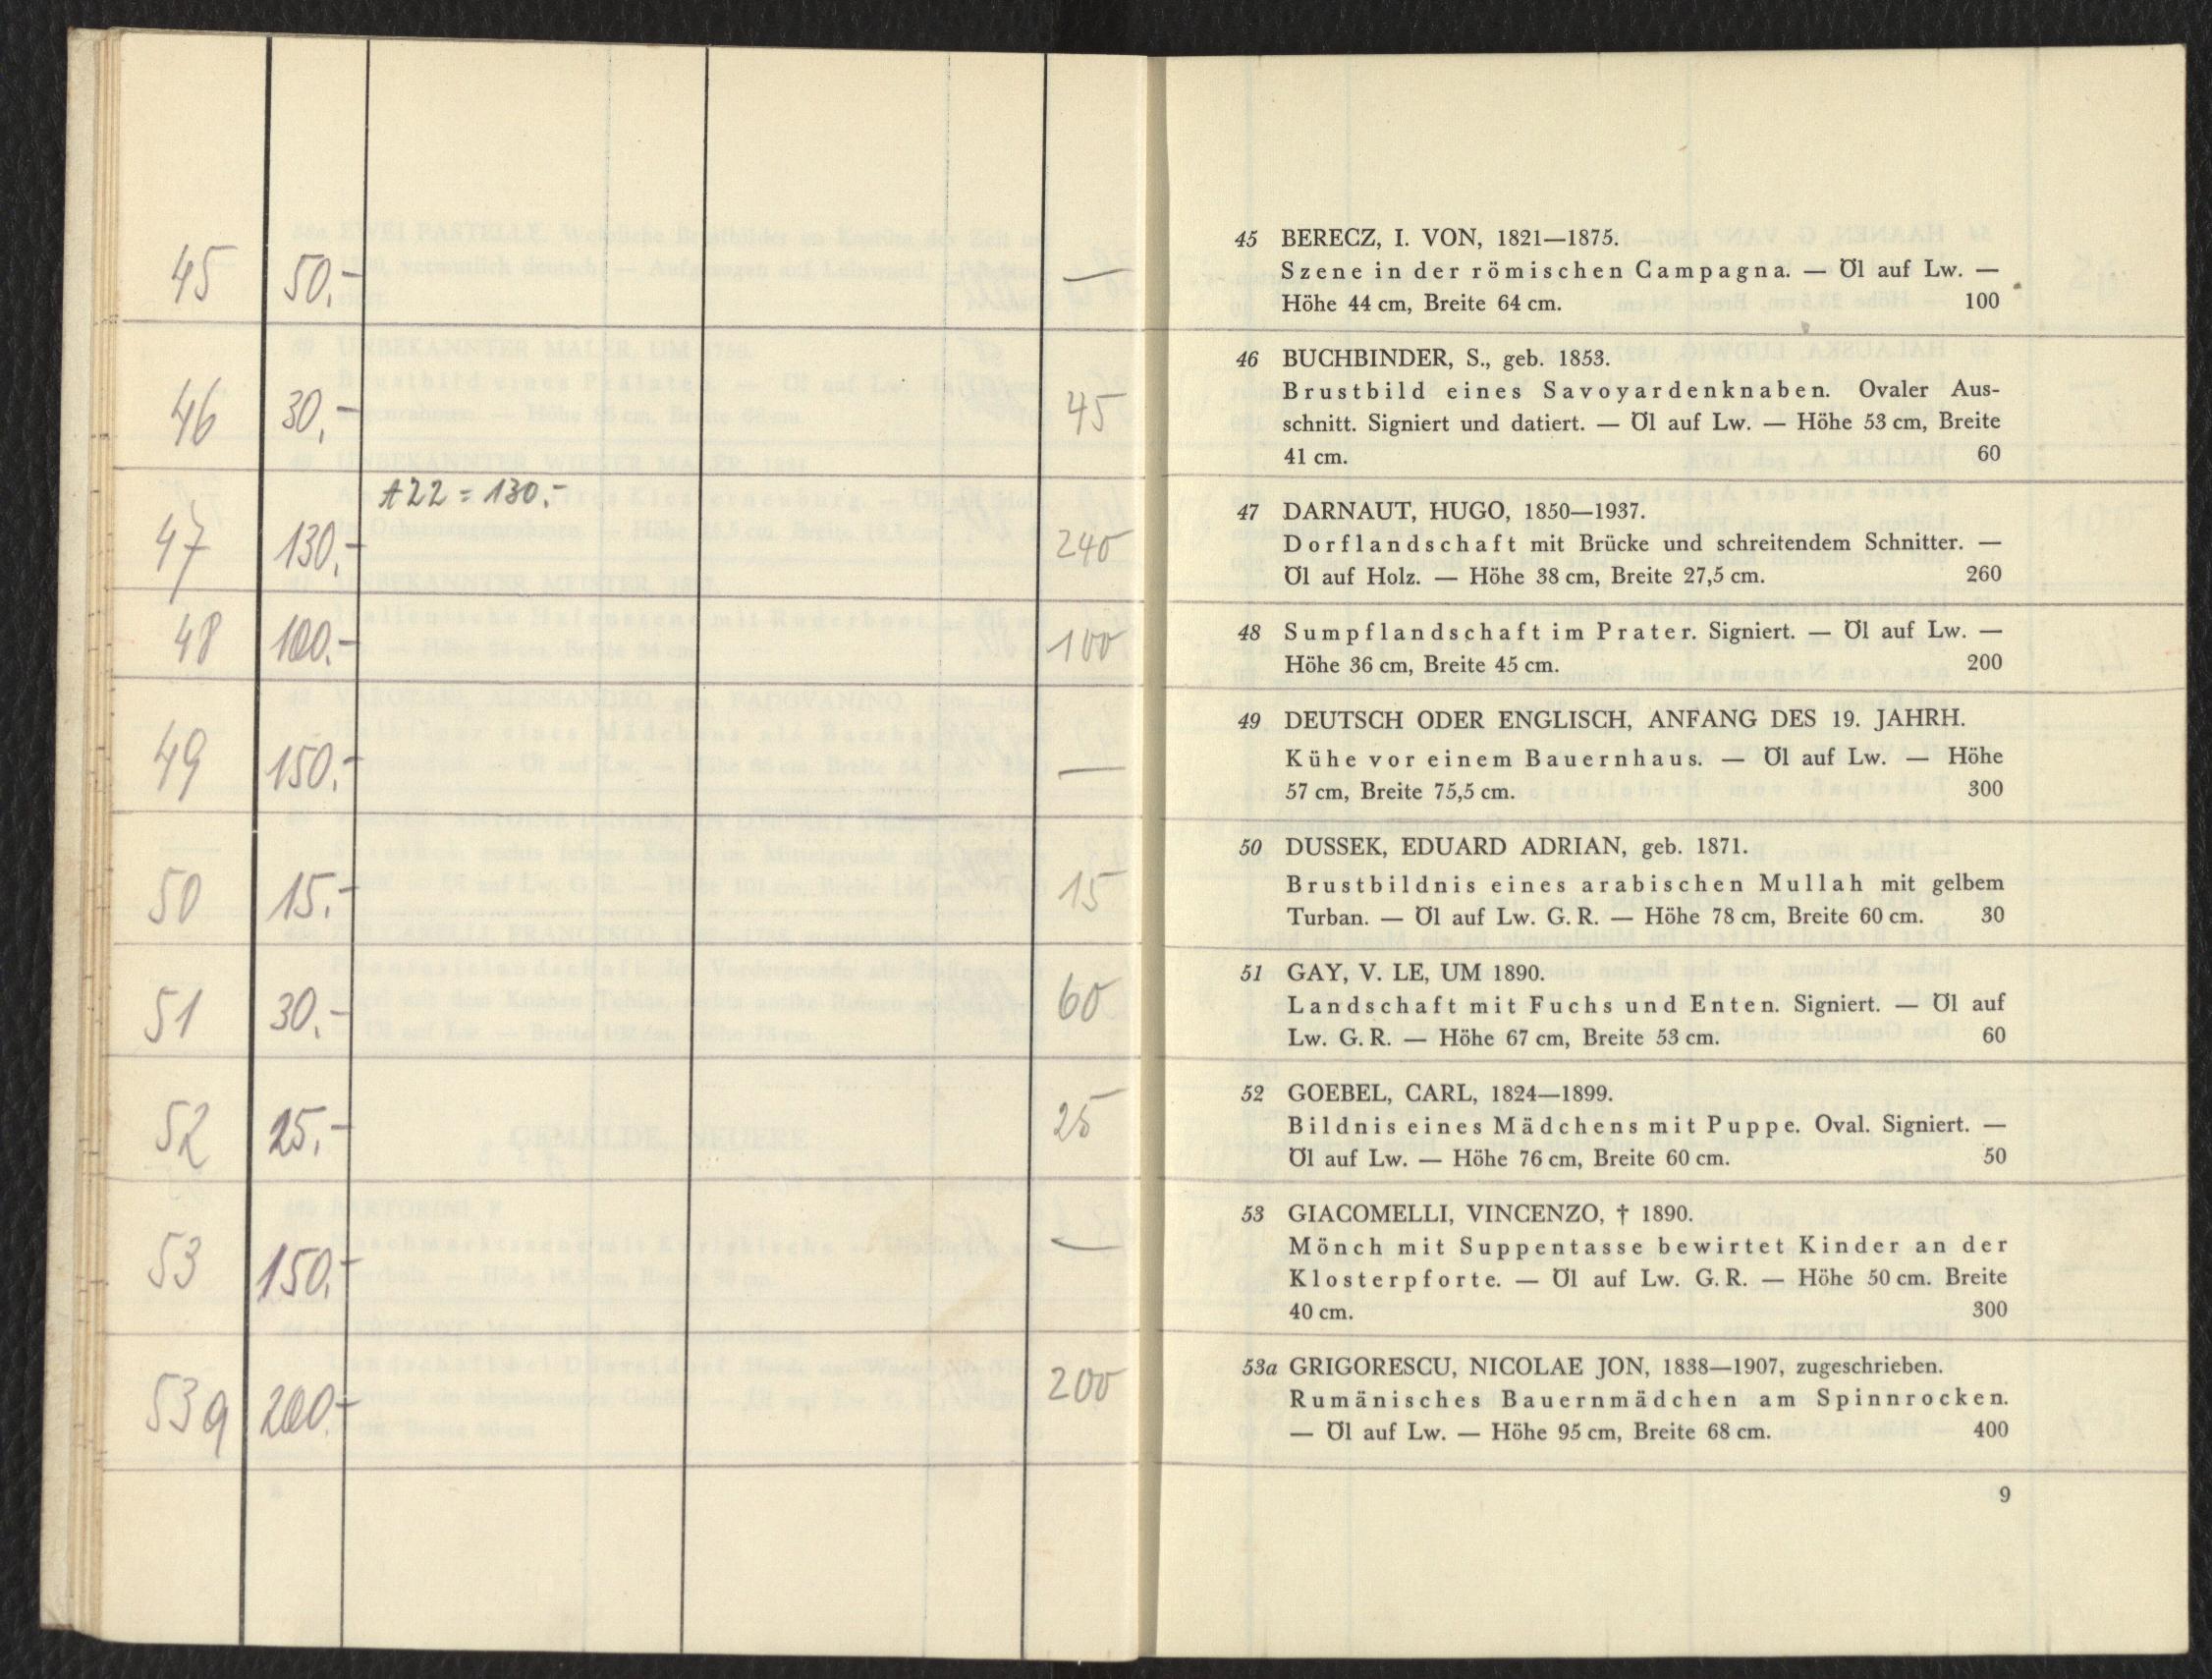 45 50.- —
46 30.- 45
A22 = 130.-
47 130.- 240
48 100.- 100
49 150.- —
50 15.- 15
51 30.- 60
52 25.- 25
53 150.- —
53a 200.- 200
45 BERECZ, I. VON, 1821—1875.
Szene in der römischen Campagna. — Öl auf Lw. —
Höhe 44 cm, Breite 64 cm. 100
46 BUCHBINDER, S., geb. 1853.
Brustbild eines Savoyardenknaben. Ovaler Aus-
schnitt. Signiert und datiert. — Öl auf Lw. — Höhe 53 cm, Breite
41 cm. 60
47 DARNAUT, HUGO, 1850—1937.
Dorflandschaft mit Brücke und schreitendem Schnitter. —
Öl auf Holz. — Höhe 38 cm, Breite 27,5 cm. 260
48 Sumpflandschaft im Prater. Signiert. — Öl auf Lw. —
Höhe 36 cm, Breite 45 cm. 200
49 DEUTSCH ODER ENGLISCH, ANFANG DES 19. JAHRH.
Kühe vor einem Bauernhaus. — Öl auf Lw. — Höhe
57 cm, Breite 75,5 cm. 300
50 DUSSEK, EDUARD ADRIAN, geb. 1871.
Brustbildnis eines arabischen Mullah mit gelbem
Turban. — Öl auf Lw. G. R. — Höhe 78 cm, Breite 60 cm. 30
51 GAY, V. LE, UM 1890.
Landschaft mit Fuchs und Enten. Signiert. — Öl auf
Lw. G. R. — Höhe 67 cm, Breite 53 cm. 60
52 GOEBEL, CARL, 1824—1899.
Bildnis eines Mädchens mit Puppe. Oval. Signiert. —
Öl auf Lw. — Höhe 76 cm, Breite 60 cm. 50
53 GIACOMELLI, VINCENZO, † 1890.
Mönch mit Suppentasse bewirtet Kinder an der
Klosterpforte. — Öl auf Lw. G. R. — Höhe 50 cm. Breite
40 cm. 300
53a GRIGORESCU, NICOLAE JON, 1838—1907, zugeschrieben.
Rumänisches Bauernmädchen am Spinnrocken.
— Öl auf Lw. — Höhe 95 cm, Breite 68 cm. 400
9